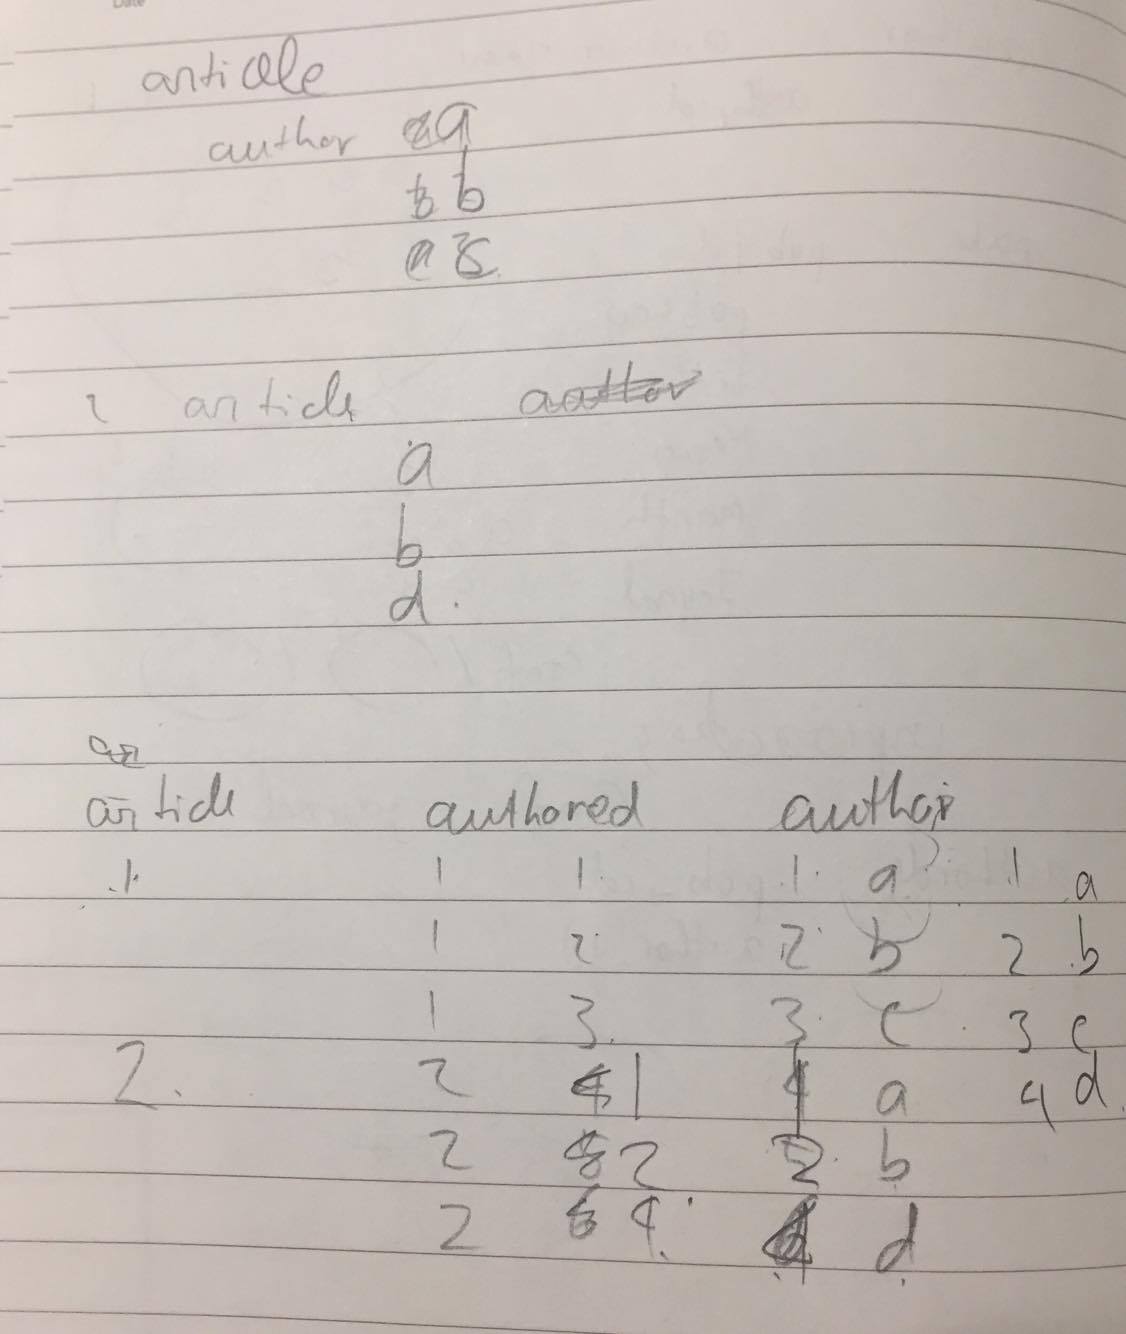 article
author a
b
2 article author
a
b
d.
article authored author
1 1 1. 1. a 1 a
1 2 2 b 2 b
1 3. 3. c 3 c
2. 2 1 1 a 4 d.
2 2 2. b
2 4. 4 d